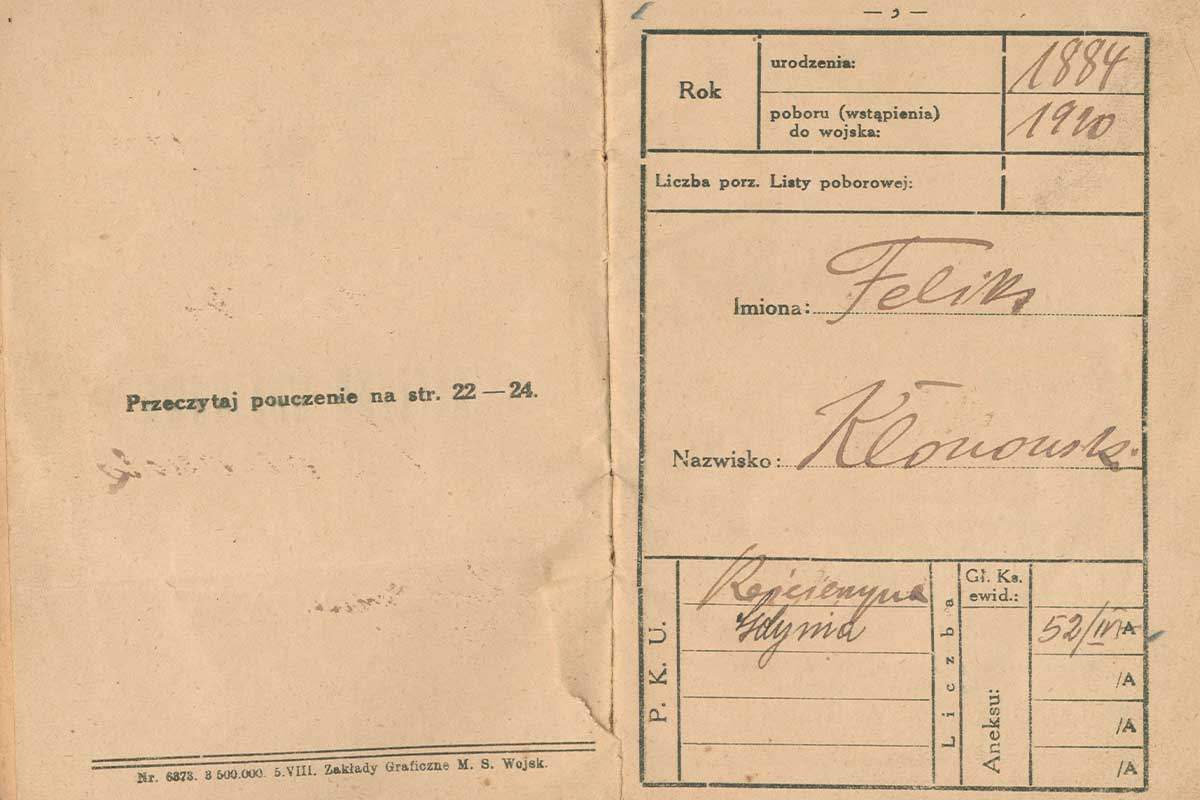 Przeczytaj pouczenie na str. 22 — 24.
Nr. 6373. 3 500.000. 5.VIII. Zakłady Graficzne M. S. Wojsk.
— 3 —
Rok
urodzenia: 1884
poboru (wstąpienia)
do wojska: 1920
Liczba porz. Listy poborowej:
Imiona: Feliks
Nazwisko: Kłonowski
P. K. U.
Gdynia
Liczba
Gł. Ks.
ewid.:
Aneksu:
52/IV/A
/A
/A
/A